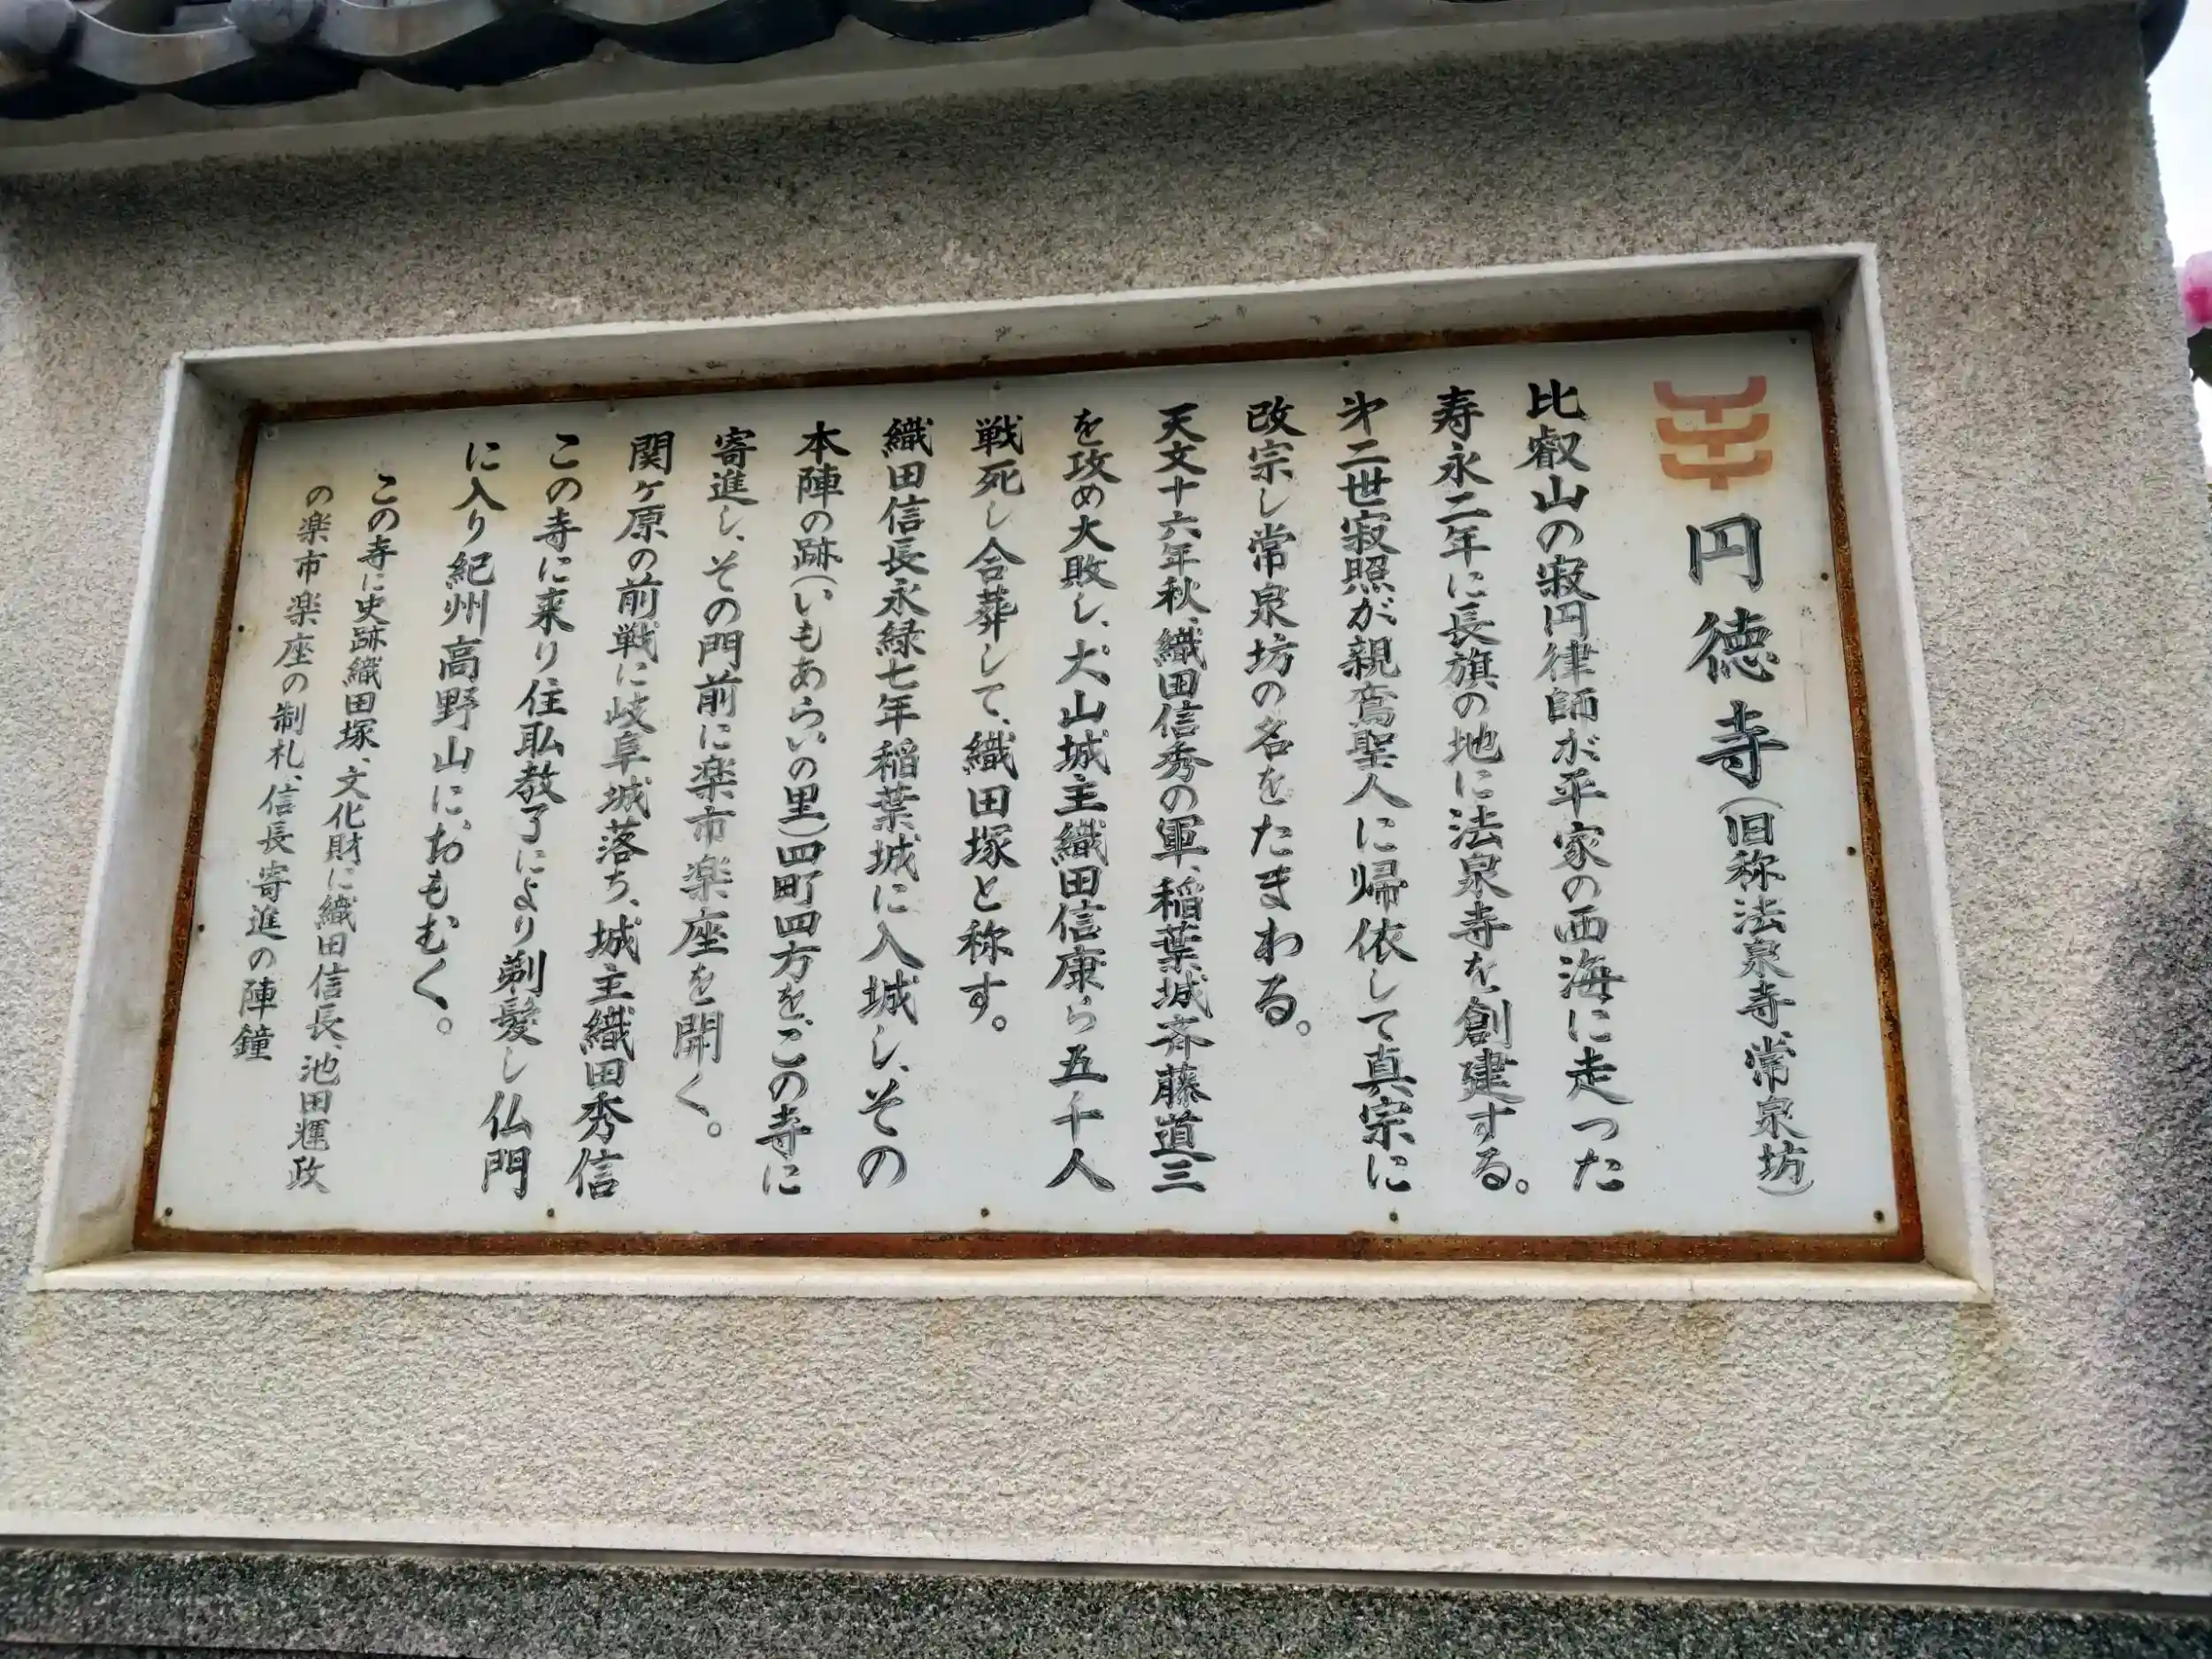 円徳寺(旧称法泉寺、常泉坊)
比叡山の寂円律師が平家の西海に走った
寿永二年に長旗の地に法泉寺を創建する。
㐧二世寂照が親鸞聖人に帰依して真宗に
改宗し常泉坊の名をたまわる。
天文十六年秋、織田信秀の軍、稲葉城斉藤道三
を攻め大敗し、犬山城主織田信康ら五千人
戦死し合葬して、織田塚と称す。
織田信長永緑七年稲葉城に入城し、その
本陣の跡(いもあらいの里)四町四方をこの寺に
寄進し、その門前に楽市楽座を開く。
関ヶ原の前戦に岐阜城落ち、城主織田秀信
この寺に来り住職教了により剃髪し仏門
に入り紀州高野山におもむく。
この寺に史跡織田塚、文化財に織田信長、池田輝政
の楽市楽座の制札、信長寄進の陣鐘